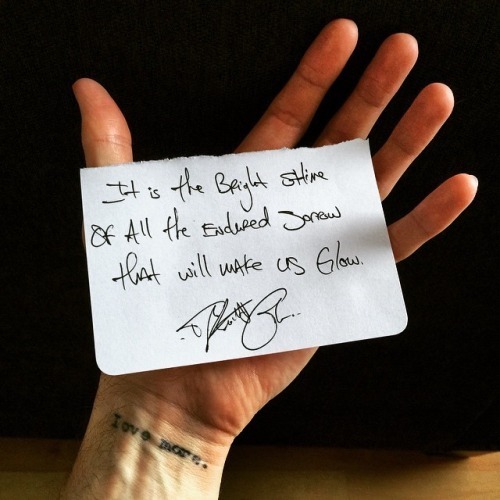 It is the Bright Shine
Of All the Endured Sorrow
that will make us Glow.
love more.